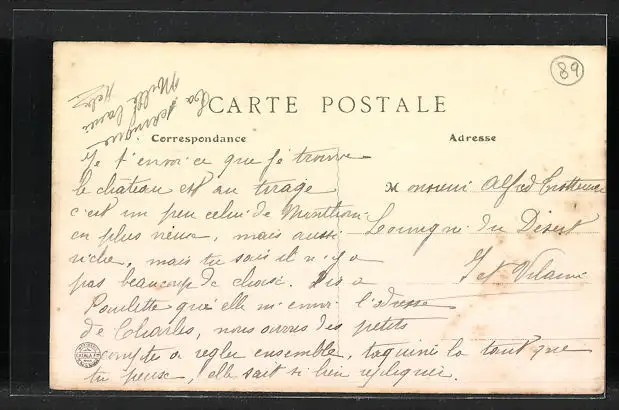 89
CARTE POSTALE
Correspondance
Adresse
Je t'envoi ce que je trouve
le château est au tirage
c'est un peu celui de
en plus vieux, mais aussi
riche, mais tu sais il n'y a
pas beaucoup de choix. Dis a
Paulette qu'elle m'envoi l'adresse
de Charles, nous avons des petits
comptes a regler ensemble, taquine la tant que
tu peux, elle sait si bien repliquer.
Monsieur Alfred
Louvigné du Désert
Ille et Vilaine
Mille